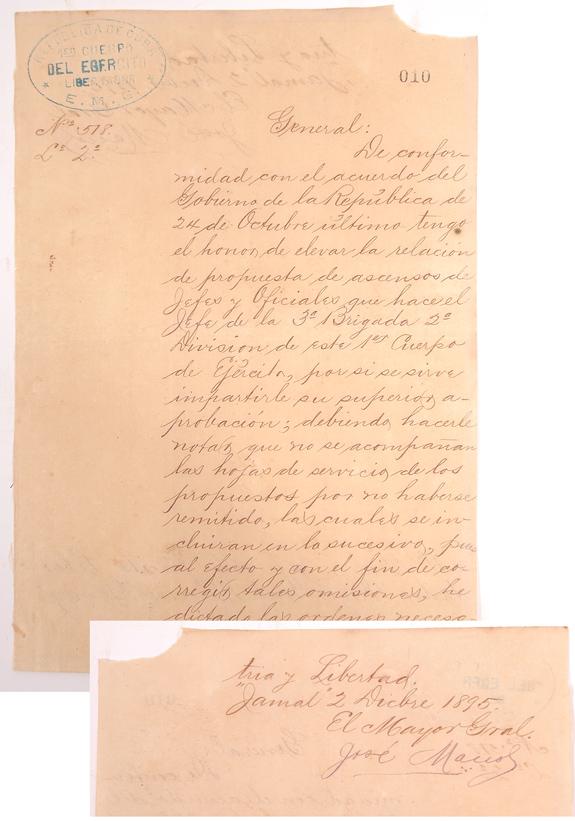 REPUBLICA DE CUBA
1ER CUERPO
DEL EGERCITO
LIBERTADOR
E. M. G.
010
No. 518.
Lo. 2o.
General:
De confor-
midad con el acuerdo del
Gobierno de la República de
24 de Octubre último tengo
el honor, de elevar la relación
de propuesta de ascensos de
Jefes y Oficiales que hace el
Jefe de la 3a Brigada 2a
Division de este 1er Cuerpo
de Ejército, por si se sirve
impartirle su superior a-
probación; debiendo hacerle
notar, que no se acompañan
las hojas de servicio, de los
propuestos por no haberse
remitido, las cuales se in-
cluiran en lo sucesivo, pues
al efecto y con el fin de co-
rregir tales omisiones, he
dictado las ordenes necesa-
tria y Libertad.
"Jamal" 2 Dicbre 1895.
El Mayor Gral.
José Maceo